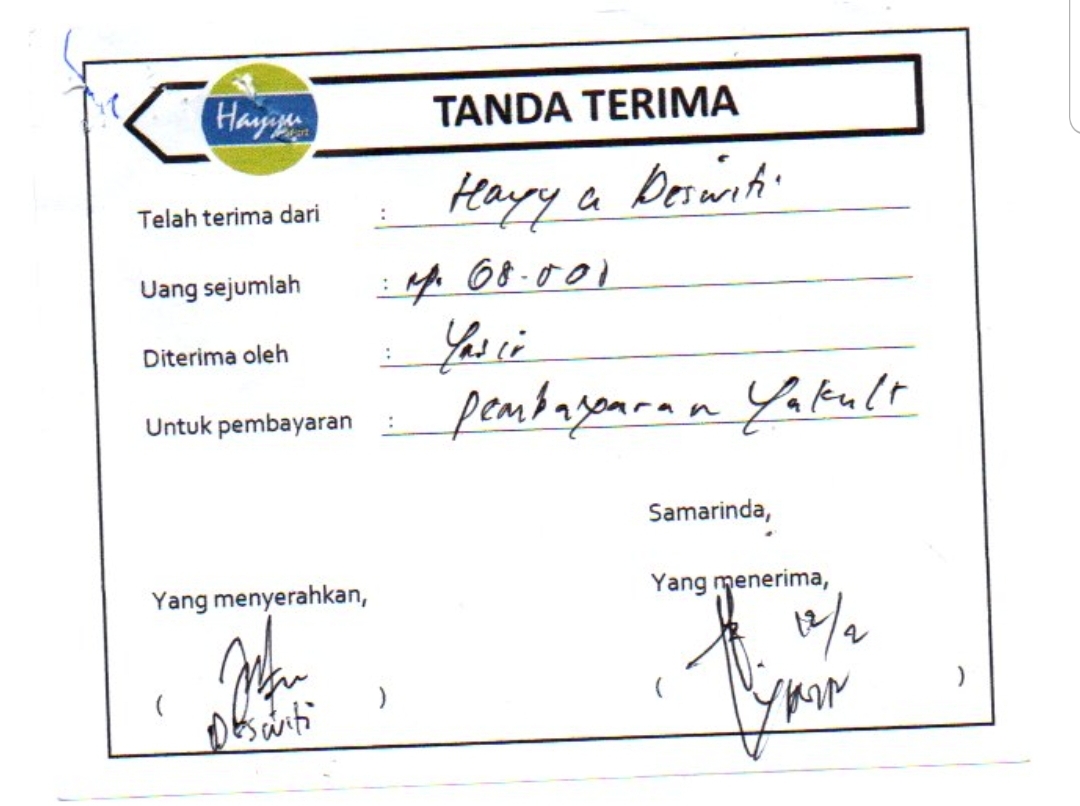 Hayyu
TANDA TERIMA
Telah terima dari : Hayy a Deswiti
Uang sejumlah : Rp. 68.000
Diterima oleh : Yasir
Untuk pembayaran : Pembayaran Yakult
Samarinda,
Yang menyerahkan, Yang menerima,
12/2
( Deswiti ) ( )